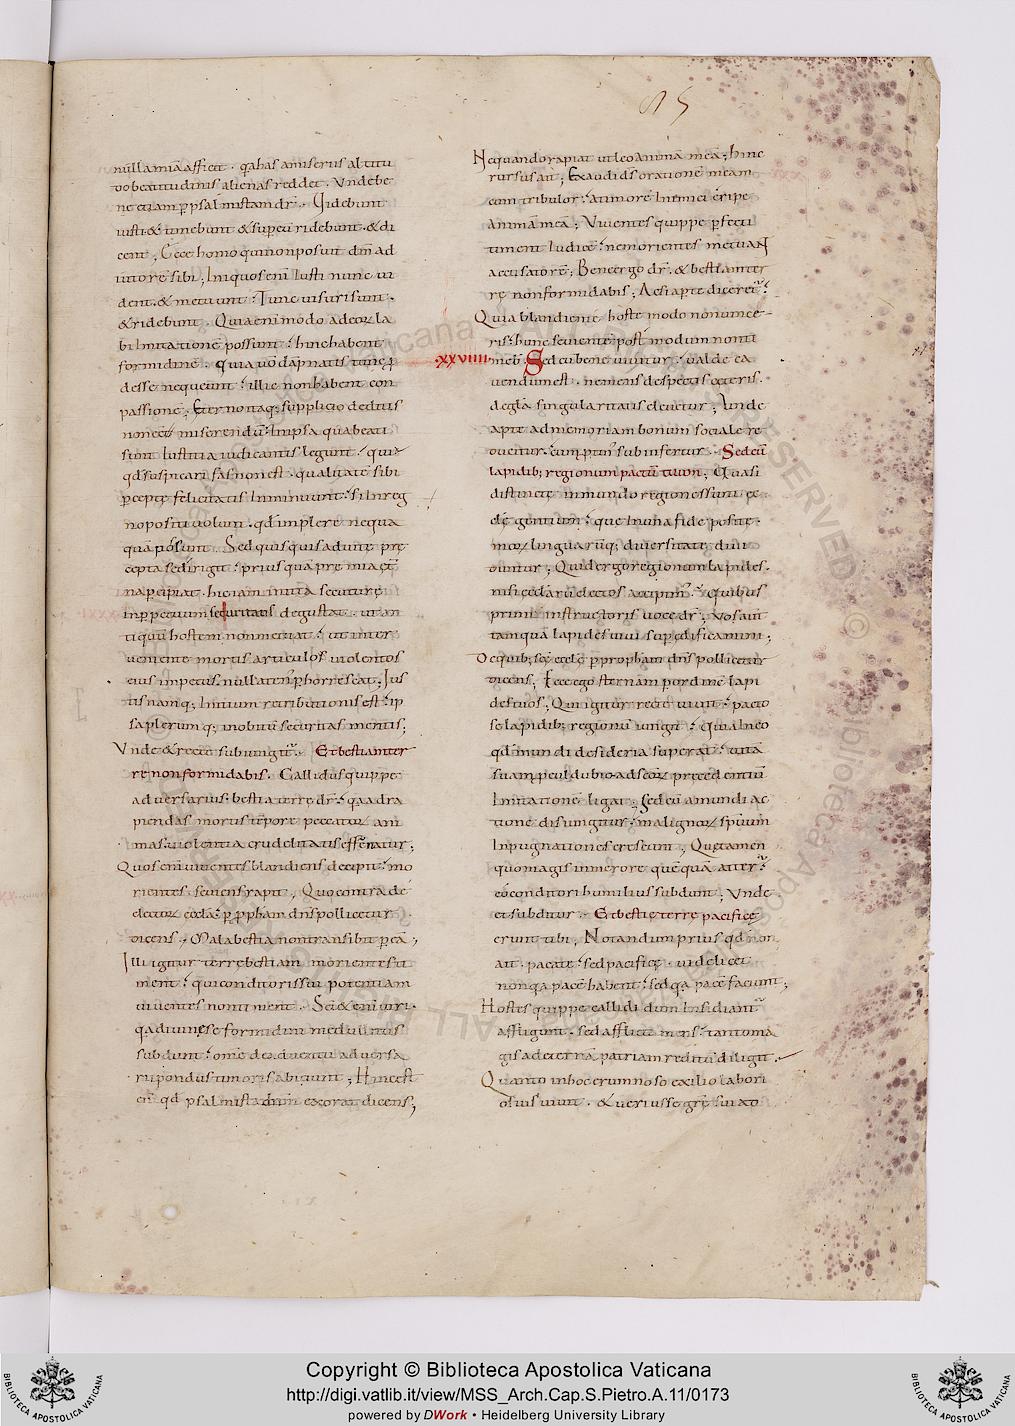 85
nullamia afficit . qa has a miseriis altitu
do beatitudinis alienas reddet . Unde be
ne etiam p psalmistam dr . Videbunt
iusti & timebunt & sup eu ridebunt . & di
cent ; Ecce homo qui non posuit dm ad
iutore sibi ; Iniquos eni iusti nunc ui
dent . & metuunt . Tunc uisuri sunt .
& ridebunt . Quia eni modo ad eoru la
bi imitatione possunt . hinc habent
formidine . quia uo dapnatis tunc p
desse nequeunt . illic non habent con
passione ; Eterno itaq; supplicio deditis
non ee miserendu . in ipsa qua beati
sunt iustitia iudicantis legunt . quia
qd suspicari fas non est . qualitate sibi
pcepte felicitatis inminuunt . si in reg
no positi uolunt . qd implere nequa
qua possunt . Sed quisquis ad uite pre
cepta se dirigit . prius qua premia et
na pcipiat . hic iam inuita secuture
in ppetuum sequritatis degustat . ut an
tiquu hostem non metuat . ut inter
ueniente mortis articulo . uiolentos
eius impetus nullaten phorrescat . Ius
tis namq; initium retributionis est . ip
sa plerumq; in obitu securitas mentis ;
Unde & recte subiungit . Et bestiam ter
re non formidabis . Callidus quippe
aduersarius . bestia terre dr . qa ad ra
piendas mortis tepore peccatoru ani
mas . uiolentia crudelitatis efferatur ;
Quos eni uiuentes blandiens decepit . mo
rientes . seuiens rapit ; Quo contra de
electoru eccla . p ppham dns pollicetur
dicens ; Mala bestia non transibit p ea ;
Illi igitur terre bestiam morientes ti
ment . qui conditoris sui potentiam
uiuentes non timent . Sci & eni uiri .
qa diuine se formidini medullitus
subdunt . ome de aduentu aduersa
rii pondus timoris abigunt ; Hinc est
eni qd psalmista dnm exorat dicens ;
Nequando rapiat ut leo anima mea ; hinc
rursus ait ; Exaudi ds oratione meam
cum tribulor . a timore inimici eripe
anima mea ; Uiuentes quippe pfecti
timent iudice . ne morientes metuant
accusatore ; Bene ergo dr . & bestiam ter
re non formidabis ; Ac si apte diceret .
Quia blandiente hoste modo non uince
ris . hunc seuiente post modum non ti
xxviiii mebis . Sed cu bene uiuitur . ualde ca
uendum est . ne mens despectis ceteris .
de gla singularitatis eleuetur ; Unde
apte ad memoriam bonum sociale re
ducitur . cum ptin subinfertur . Sed cu
lapidib; regionum pactu tuum ; Quasi
distincte in mundo regiones sunt ec
cle gentium . que in una fide posite .
moru linguaruq; diuersitate diui
duntur ; Quid ergo regionum lapides .
nisi eccliaru electos accipim . Quibus
primi instructoris uoce dr ; Uos aut
tamqua lapides uiui supedificamini ;
De quib; sce eccle p ppham dns pollicetur
dicens ; Ecce ego sternam p ordine lapi
des tuos ; Qui igitur recte uiuit . pacto
se lapidib; regionu iungit . Quia in eo
qd mundi desideria superat . uita
suam pcul dubio ad scoru precedentiu
imitatione ligat ; Sed cu a mundi ac
tione disiungitur . malignoru spiritum
inpugnationes crescunt ; Que tamen
quo magis in merore quequa atter .
eo conditori humilius subdunt ; Unde
et subditur . Et bestie terre pacifice
erunt tibi ; Notandum prius qd non
ait . pacate . sed pacifice . uidelicet
non qa pace habent . sed qa pace faciunt ;
Hostes quippe callidi dum insidiant
affligunt . sed afflicta mens . tanto ma
gis ad eterna patriam reditu diligit .
Quanto in hoc erumnoso exilio labori
osius uiuit . & uerius se gre sui ad
Copyright © Biblioteca Apostolica Vaticana
http://digi.vatlib.it/view/MSS_Arch.Cap.S.Pietro.A.11/0173
powered by DWork • Heidelberg University Library